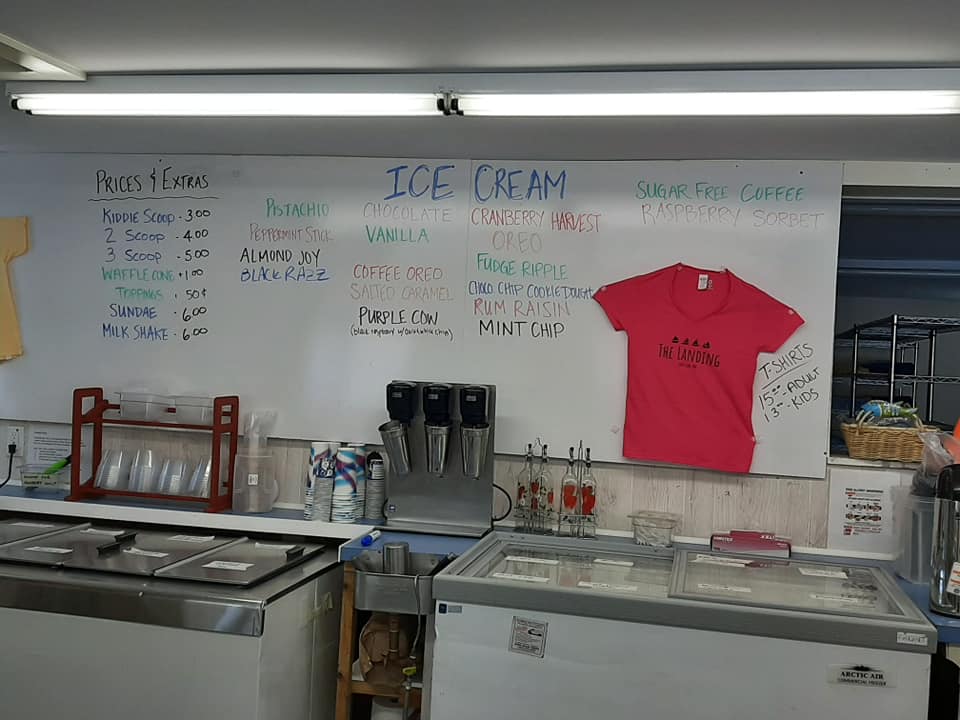 PRICES & EXTRAS
KIDDIE SCOOP - 3.00
2 SCOOP - 4.00
3 SCOOP - 5.00
WAFFLE CONE +1.00
TOPPINGS . 50¢
SUNDAE - 6.00
MILK SHAKE - 6.00
ICE CREAM
PISTACHIO
PEPPERMINT STICK
ALMOND JOY
BLACK RAZZ
CHOCOLATE
VANILLA
COFFEE OREO
SALTED CARAMEL
PURPLE COW
CRANBERRY HARVEST
OREO
FUDGE RIPPLE
CHOCO CHIP COOKIE DOUGH
RUM RAISIN
MINT CHIP
SUGAR FREE COFFEE
RASPBERRY SORBET
THE LANDING
T-SHIRTS
15.00 - ADULT
13.00 - KIDS
ARCTIC AIR
COMMERCIAL FREEZER